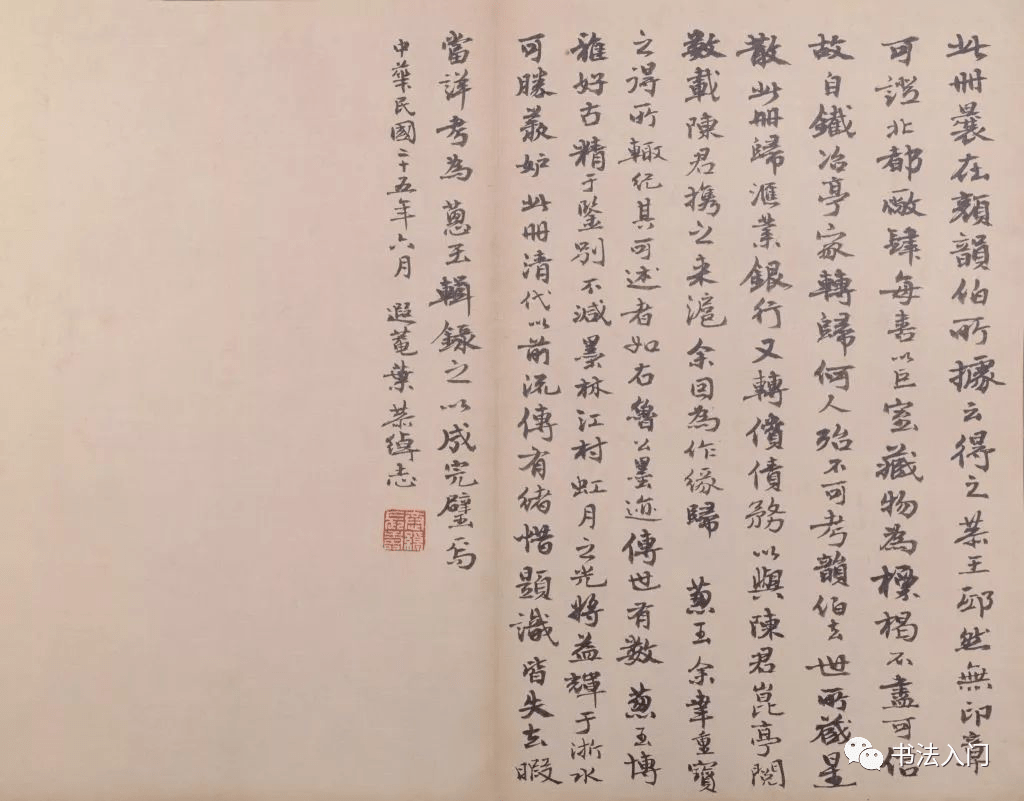 此冊曩在顏韻伯所據云得之恭王邸然無印章
可證北都廠肆每喜以巨室藏物為標榜不盡可信
故自鐵冶亭家轉歸何人殆不可考韻伯去世所藏星
散此冊歸滙業銀行又轉償債務以與陳君崑亭閱
數載陳君攜之來滬余因為作緣歸 蔥玉余幸重寶
之得所輙紀其可述者如右魯公墨迹傳世有數 蔥玉博
雅好古精于鑒別不減墨林江村虹月之光將益輝于浙水
可勝羨妒此冊清代以前流傳有緒惜題識皆失去暇
當詳考為 蔥玉輯錄之以成完璧焉
中華民國二十五年六月 遐菴葉恭綽志
书法入门